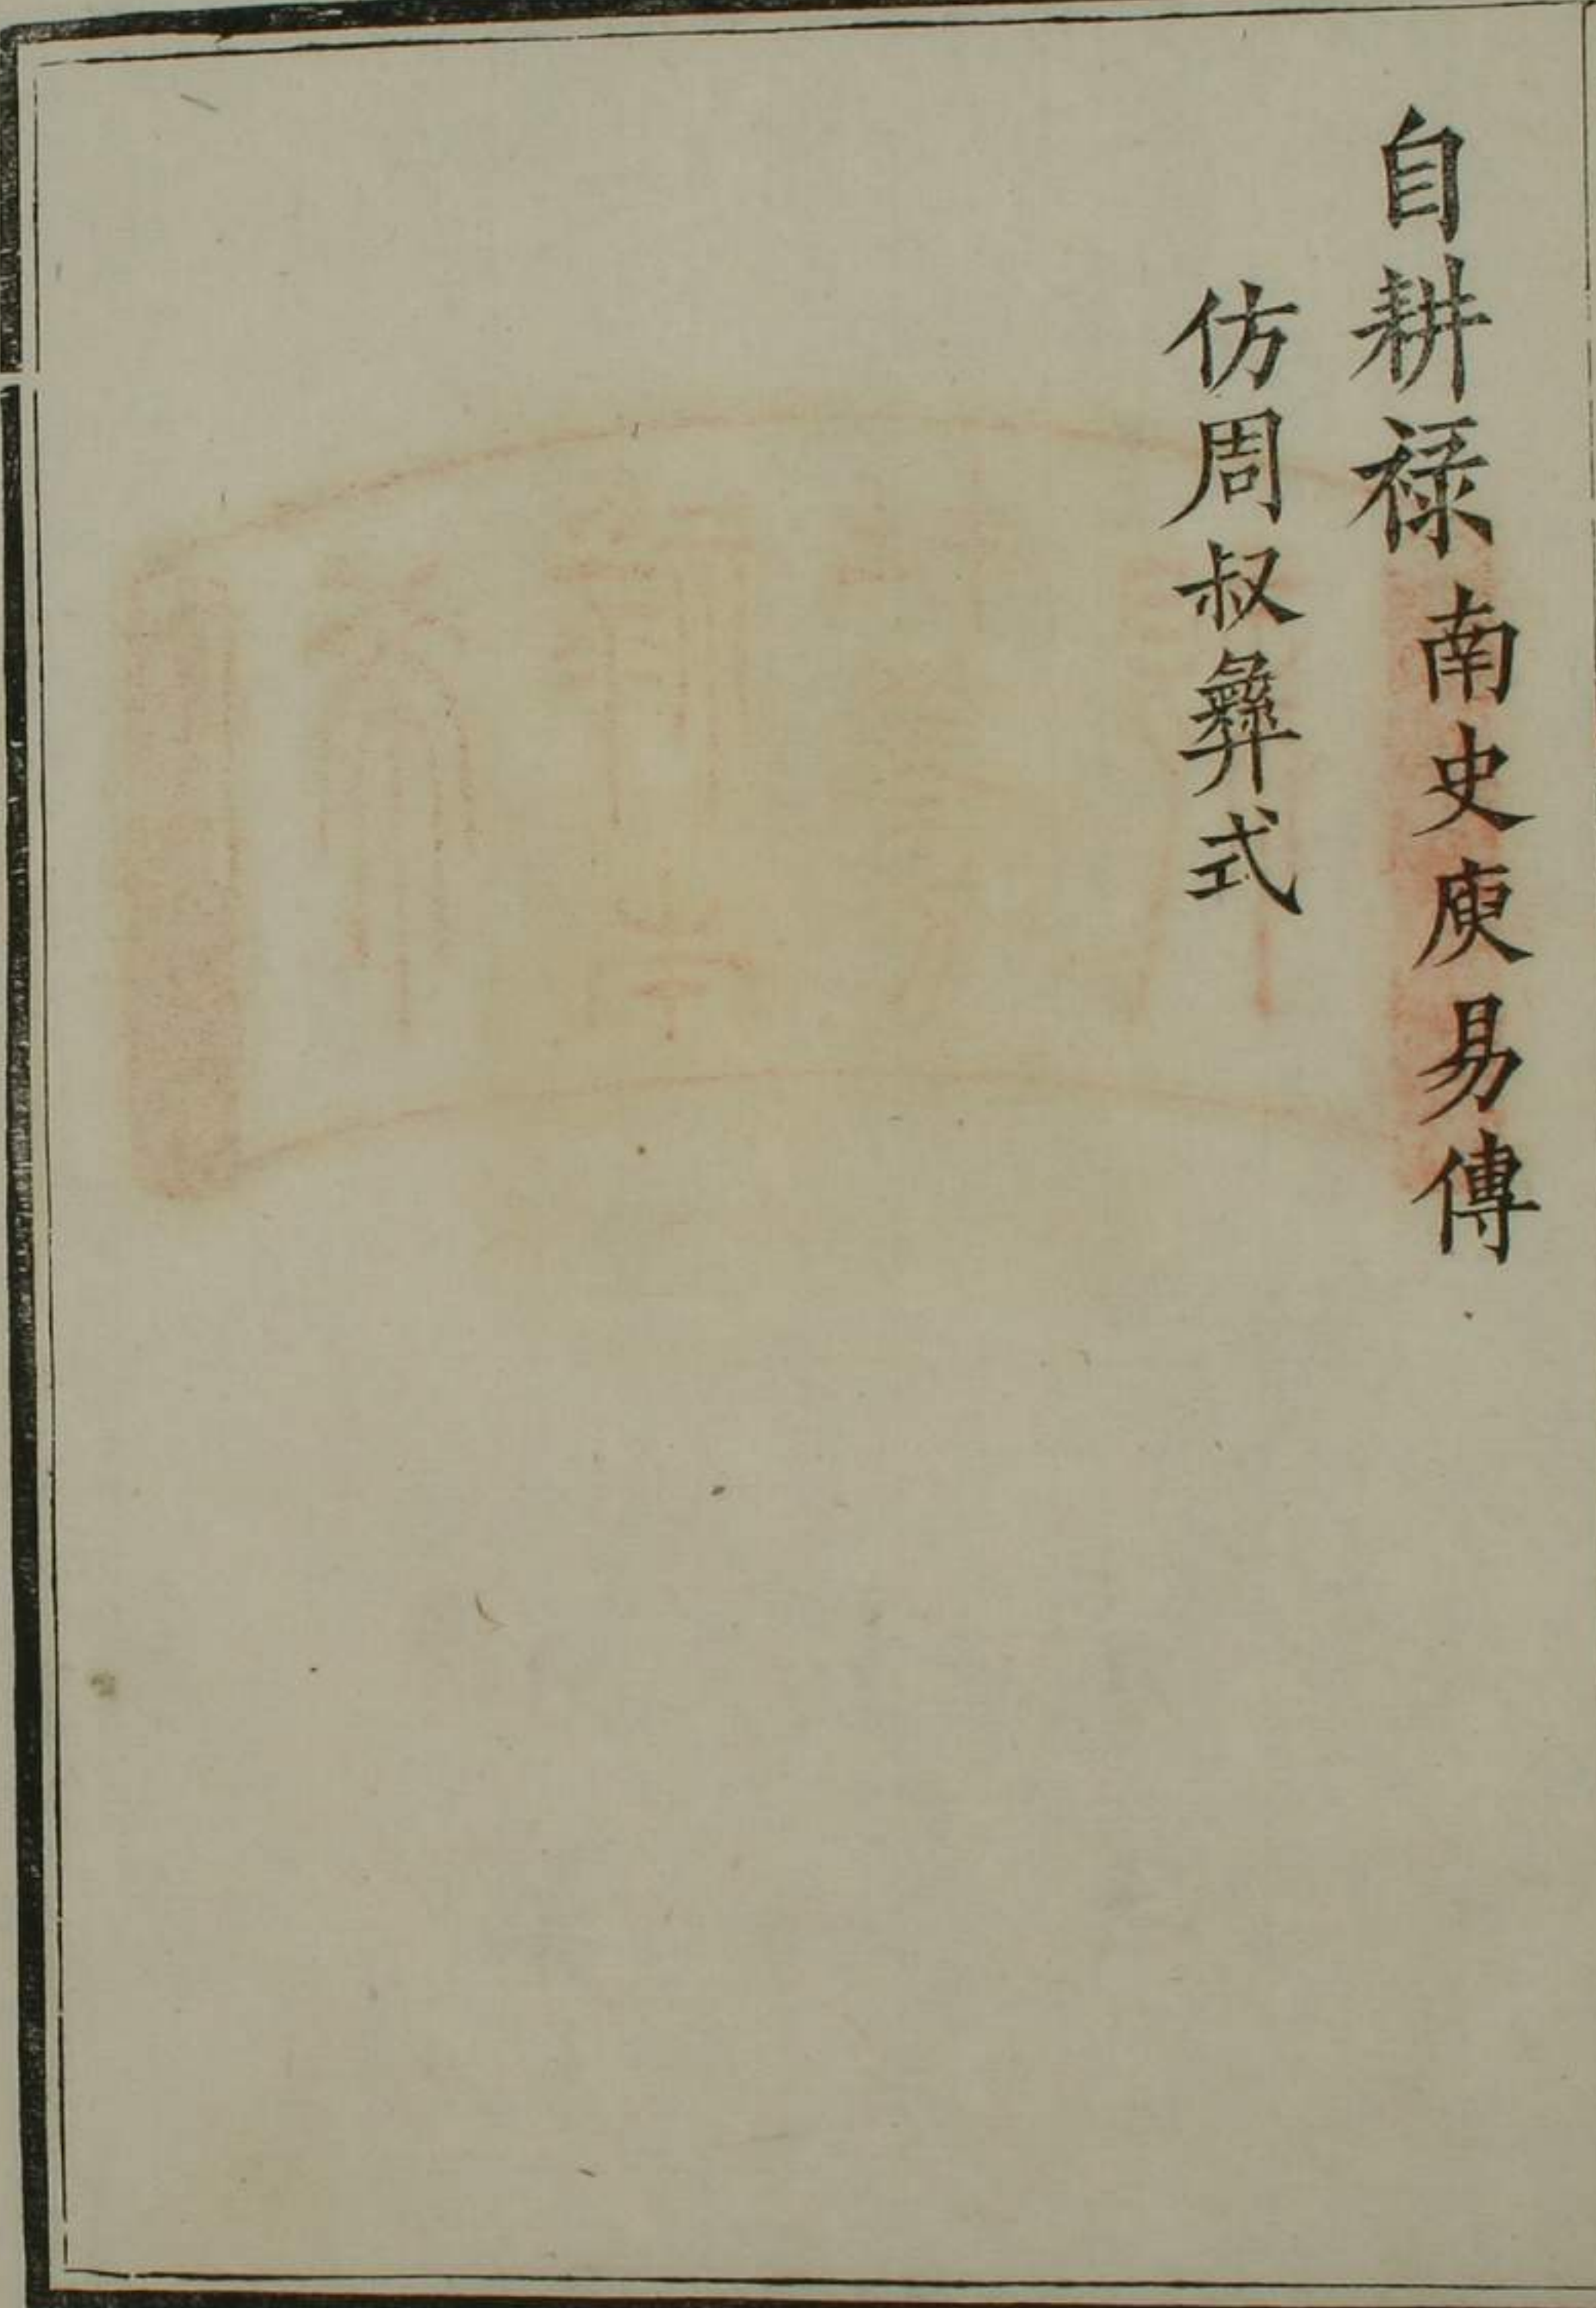 自耕祿南史庾易傳
仿周叔彝式